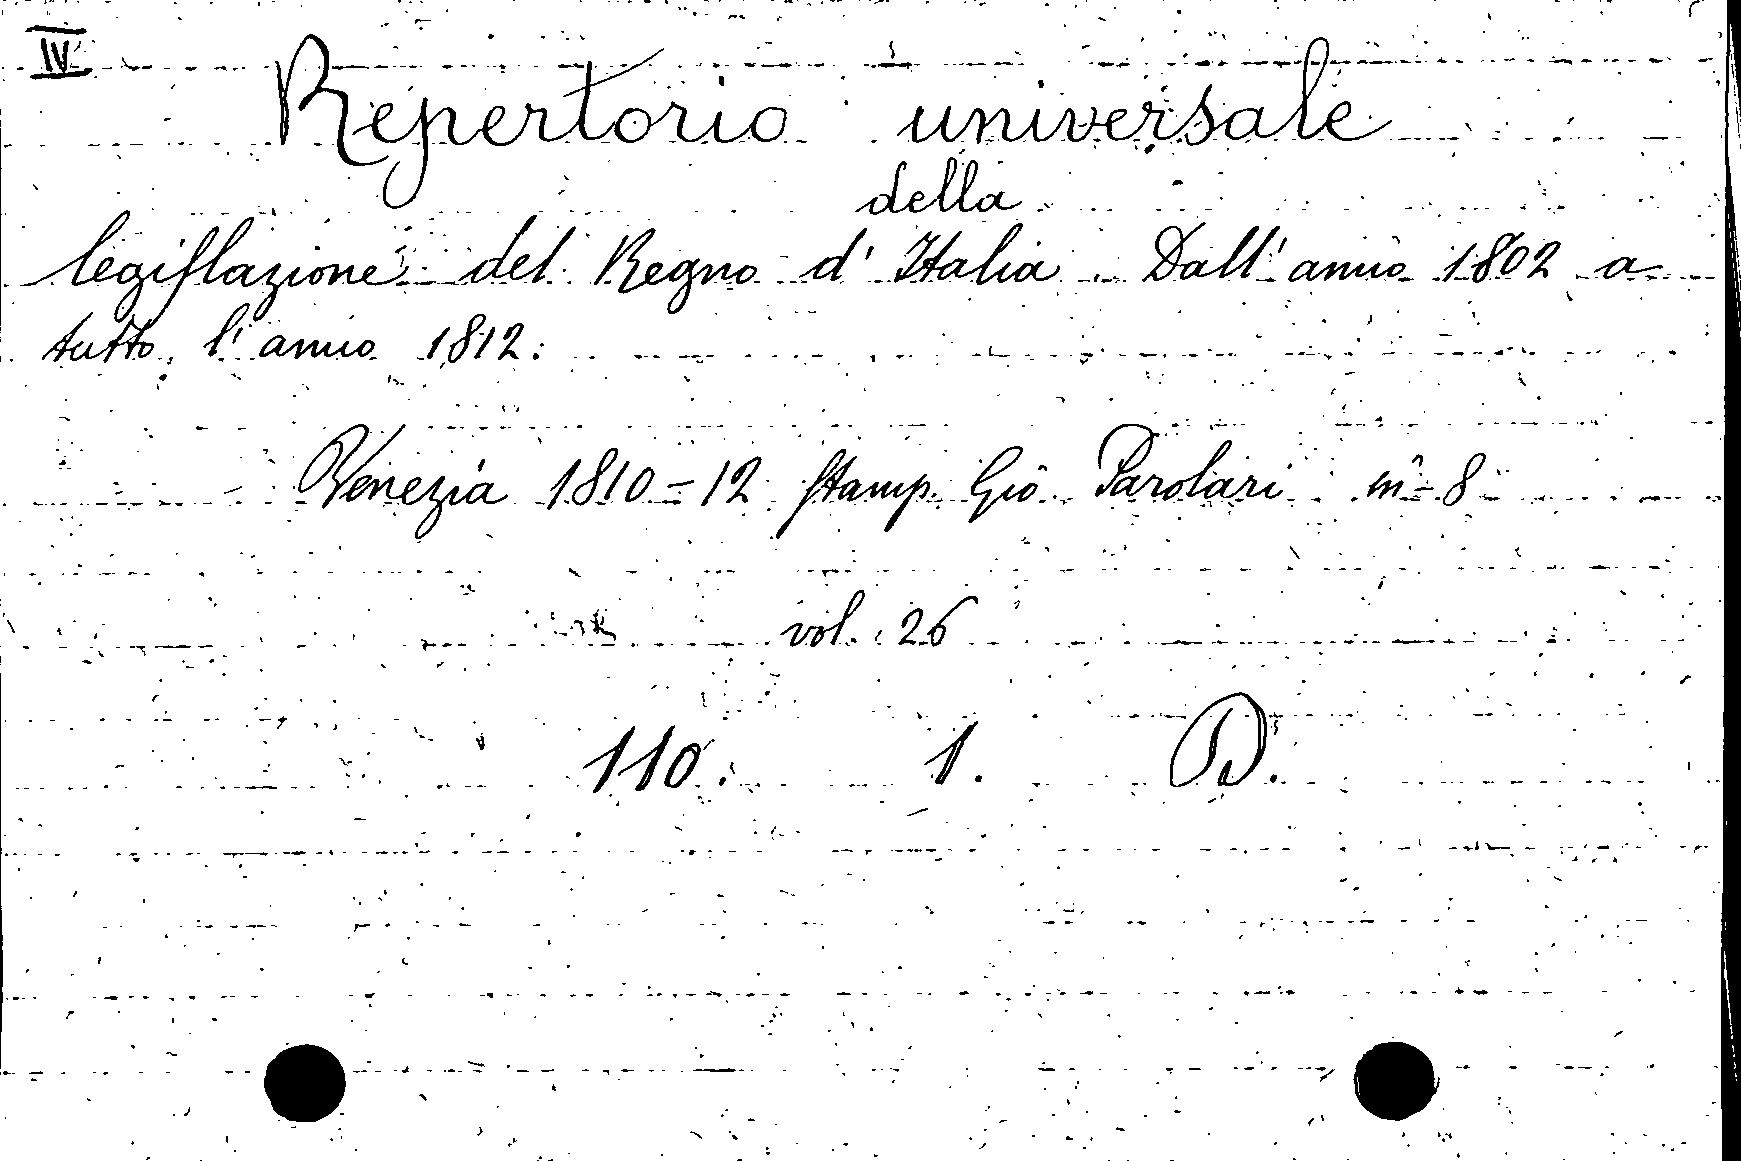 IV
Repertorio universale
della
legislazione del Regno d' Italia. Dall' anno 1802 a
tutto l' anno 1812.
Venezia 1810-12 Stamp. Gio. Parolari in-8
vol. 26
110. 1. D.